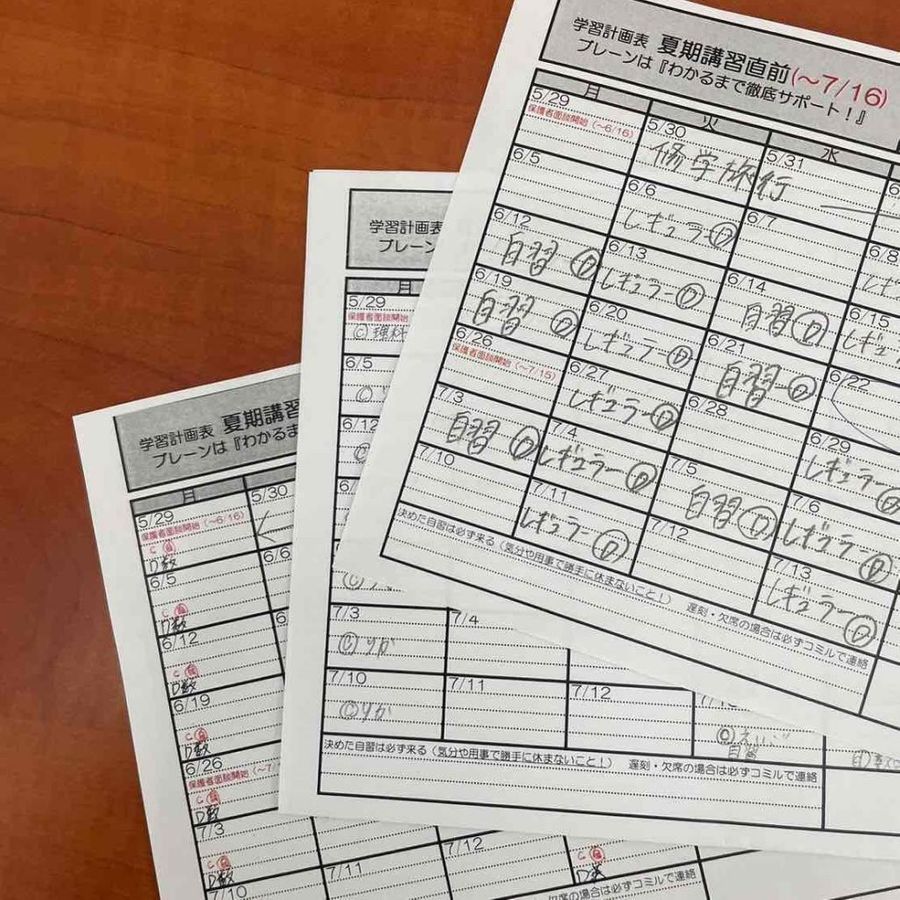 学習計画表 夏期講習直前(～7/16)
ブレーンは『わかるまで徹底サポート！』
月 火 水
5/29
保護者面談開始（～6/16）
5/30
修学旅行
5/31
6/5
6/6
レギュラーⒹ
6/7
6/8
6/12
自習 Ⓓ
6/13
レギュラーⒹ
6/14
自習Ⓓ
6/15
レギュ
6/19
自習 Ⓓ
6/20
レギュラーⒹ
6/21
自習Ⓓ
6/22
6/26
保護者面談開始（～7/15）
6/27
レギュラーⒹ
6/28
6/29
レギュラーⒹ
7/3
自習 Ⓓ
7/4
レギュラーⒹ
7/5
自習Ⓓ
7/6
レギュラーⒹ
7/10
7/11
レギュラーⒹ
7/12
7/13
レギュラーⒹ
決めた自習は必ず来る（気分や用事で勝手に休まないこと！） 遅刻・欠席の場合は必ずコミルで連絡
学習計画表
ブレーン
月
5/29
保護者面談開始
Ⓒ 理科
6/5
Ⓒ
6/12
Ⓒ
7/3
Ⓒ りか
7/4
7/10
Ⓒりか
7/11
7/12
Ⓒ えいご
自習
決めた自習は必ず来る（気分や用事で勝手に休まないこと！） 遅刻・欠席の場合は必ずコミルで連絡
学習計画表 夏期講習
ブレーンは『わかるまで
月
5/29
保護者面談開始（～6/16）
5/30
D数
6/5
D数
6/6
6/12
D数
6/19
D数
6/26
保護者面談開始（～7/
D数
7/3
D数
7/10
7/11
7/12
欠席の場合は必ずコミルで連絡